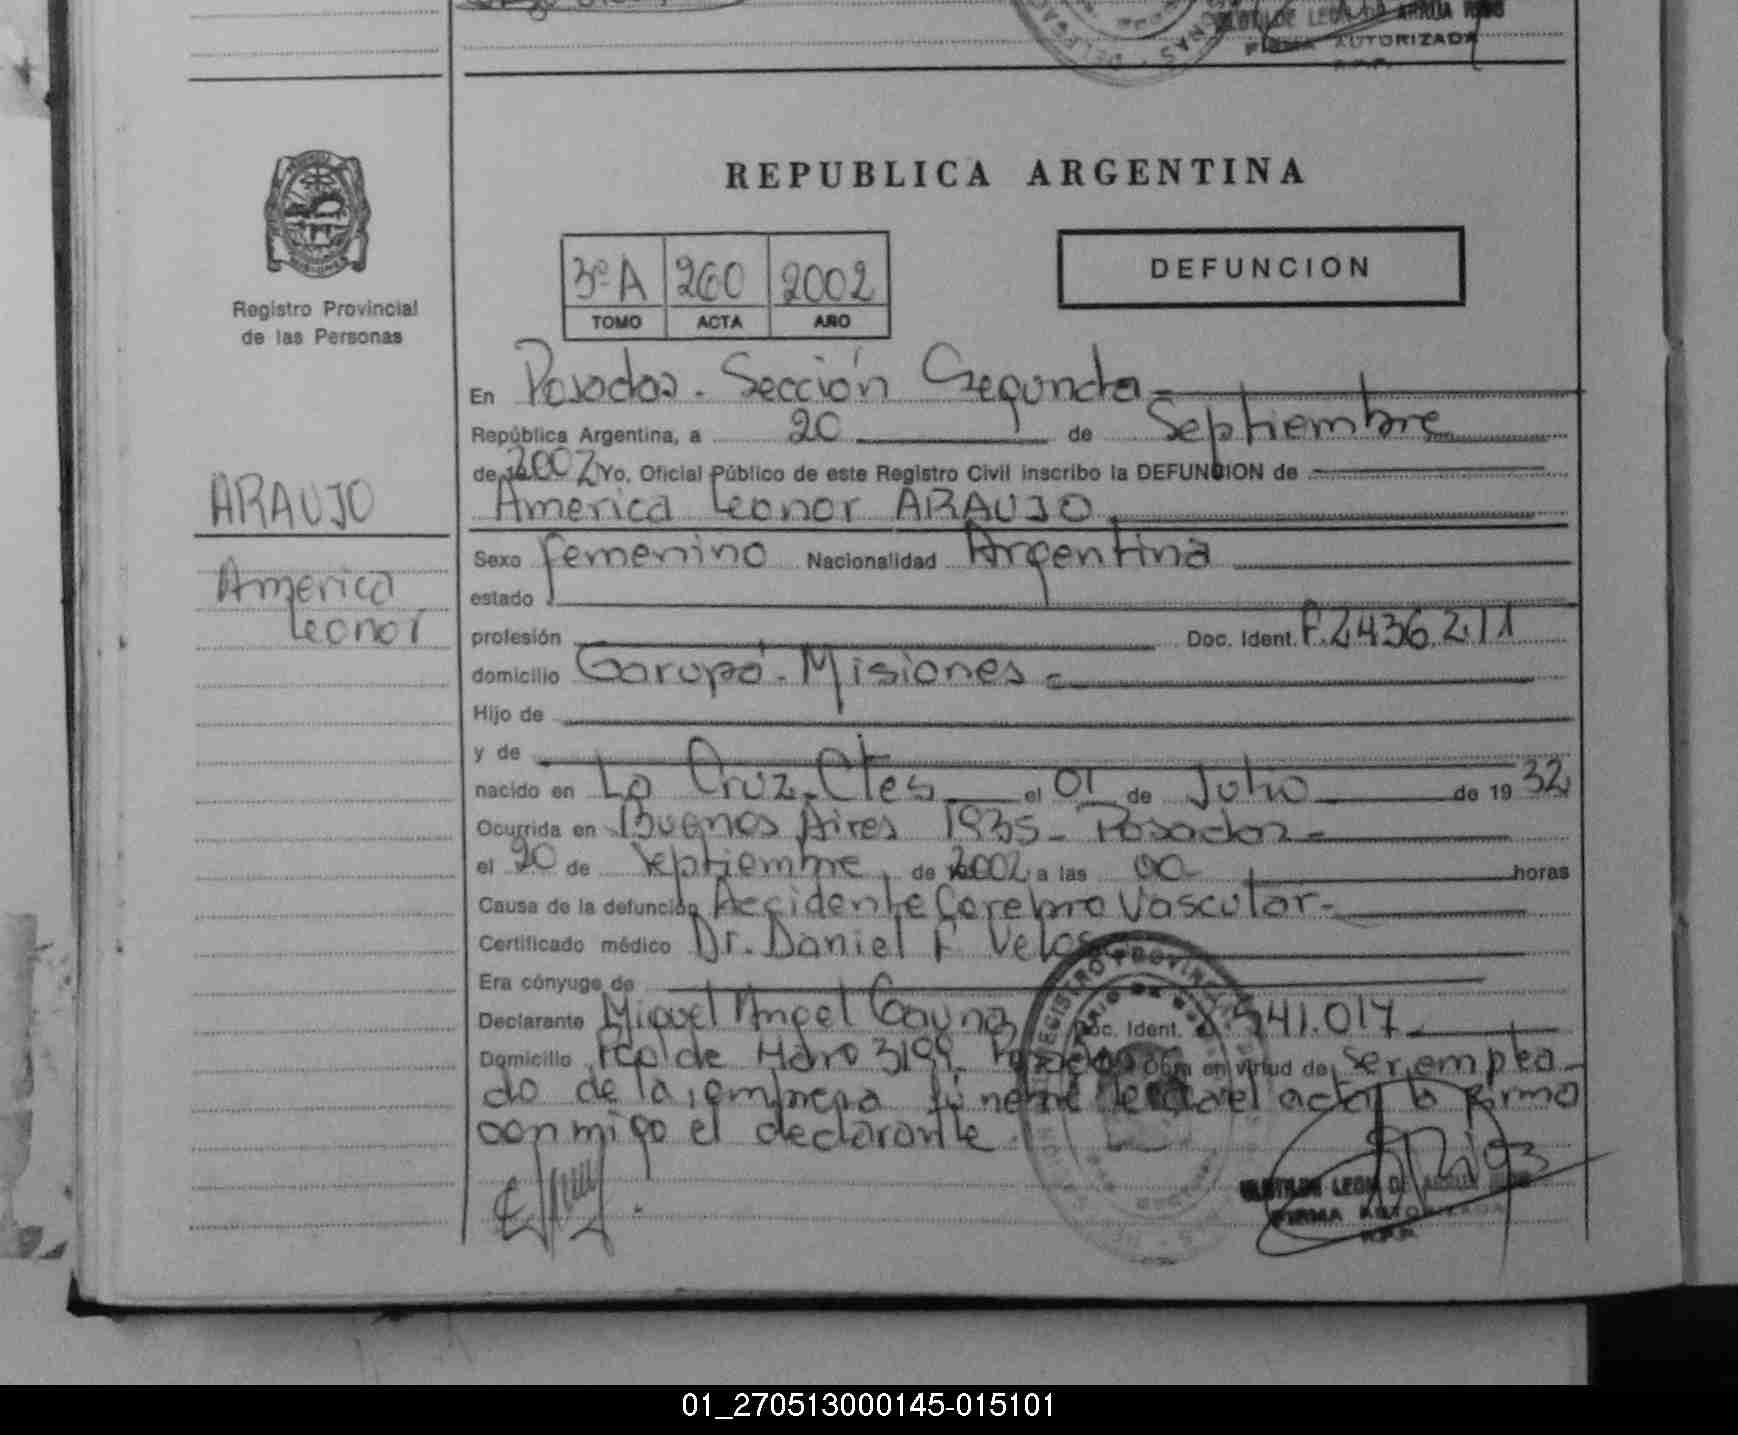 FIRMA AUTORIZADA
R.P.P.
REPUBLICA ARGENTINA
3º A 260 2002
TOMO ACTA AÑO
DEFUNCION
Registro Provincial
de las Personas
ARAUJO
America
Leonor
En Posadas - Sección Segunda -
República Argentina, a 20 de Septiembre
de 2002 Yo, Oficial Público de este Registro Civil inscribo la DEFUNCION de
America Leonor ARAUJO
Sexo femenino Nacionalidad Argentina
estado
profesión Doc. Ident. F.2.436.211
domicilio Garupá - Misiones -
Hijo de
y de
nacido en La Cruz - Ctes el 01 de Julio de 1932
Ocurrida en Buenos Aires 1935 - Posadas -
el 20 de Septiembre de 2002 a las 00 horas
Causa de la defunción Accidente Cerebro Vascular -
Certificado médico Dr. Daniel F
Era cónyuge de
Declarante Miguel Angel Gauna Doc. Ident. 541.017
Domicilio de Haro 3199 Obra en virtud de ser emplea-
do de la empresa fúnebre el acta la firma
conmigo el declarante
REGISTRO PROVINCIAL
FIRMA AUTORIZADA
R.P.P.
01_270513000145-015101